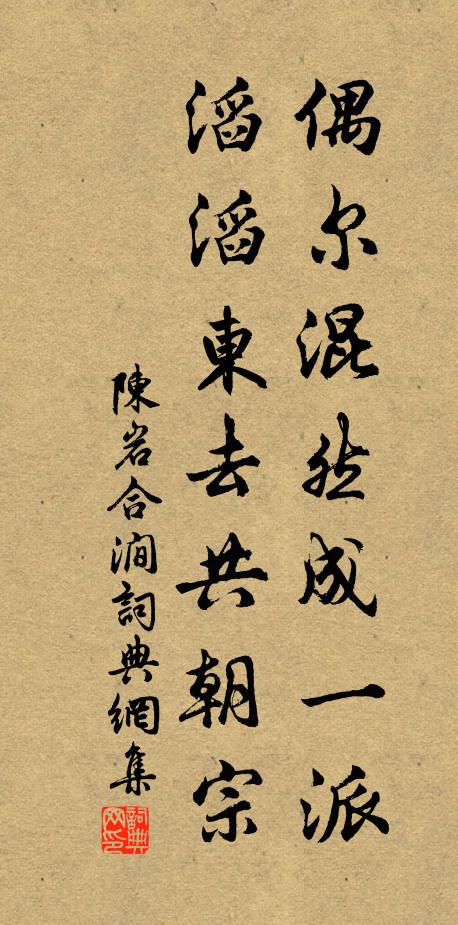 偶尔混然成一派
滔滔東去共朝宗
陳岩合澗詞典網集
詞典网印